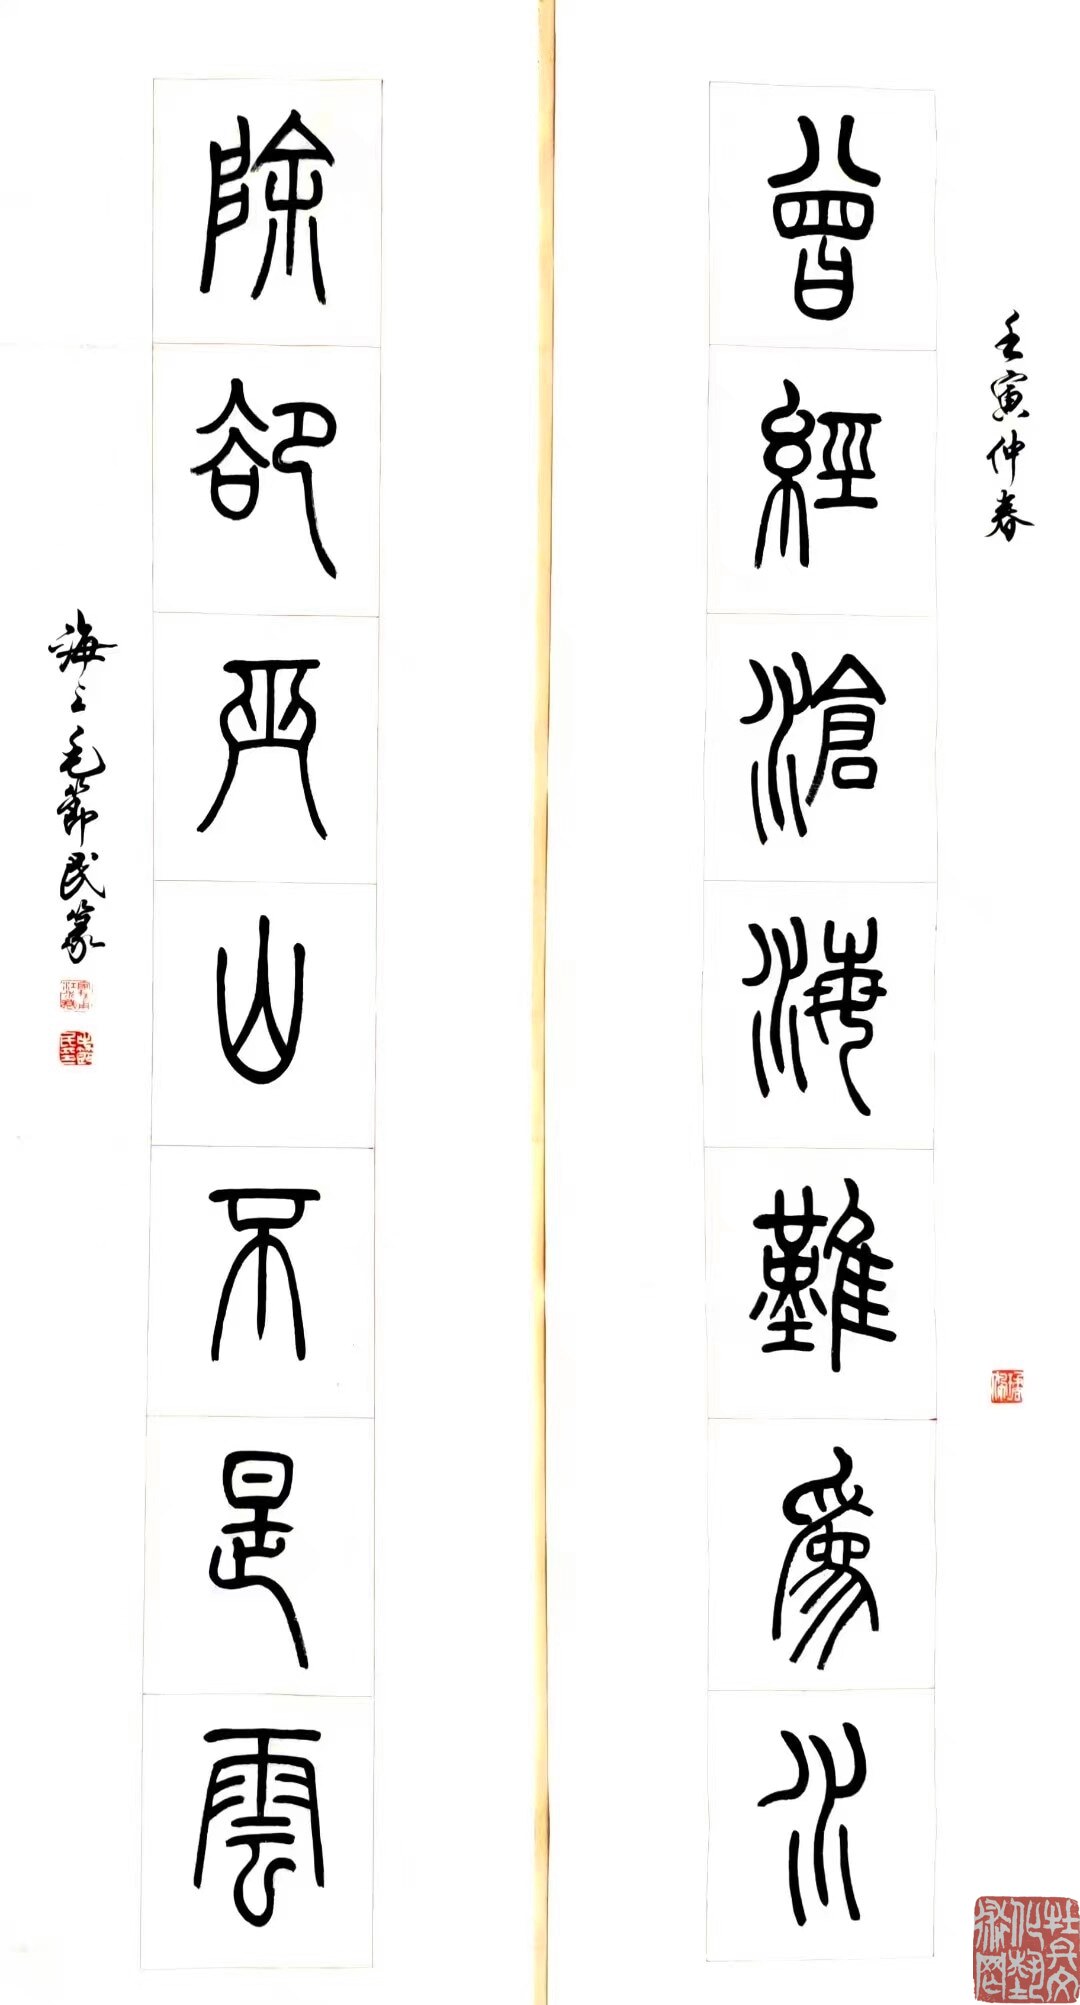 壬寅仲春
曾經滄海難爲水
除卻巫山不是雲
海上毛節民篆